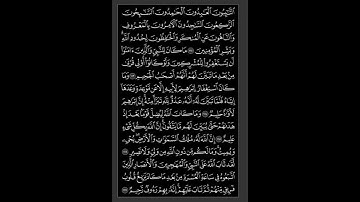 ٱلتَّٰٓئِبُونَ ٱلۡعَٰبِدُونَ ٱلۡحَٰمِدُونَ ٱلسَّٰٓئِحُونَ
ٱلرَّٰكِعُونَ ٱلسَّٰجِدُونَ ٱلۡأٓمِرُونَ بِٱلۡمَعۡرُوفِ
وَٱلنَّاهُونَ عَنِ ٱلۡمُنكَرِ وَٱلۡحَٰفِظُونَ لِحُدُودِ ٱللَّهِۗ
وَبَشِّرِ ٱلۡمُؤۡمِنِينَ ١١٢ مَا كَانَ لِلنَّبِيِّ وَٱلَّذِينَ ءَامَنُوٓاْ
أَن يَسۡتَغۡفِرُواْ لِلۡمُشۡرِكِينَ وَلَوۡ كَانُوٓاْ أُوْلِي قُرۡبَىٰ
مِنۢ بَعۡدِ مَا تَبَيَّنَ لَهُمۡ أَنَّهُمۡ أَصۡحَٰبُ ٱلۡجَحِيمِ ١١٣ وَمَا
كَانَ ٱسۡتِغۡفَارُ إِبۡرَٰهِيمَ لِأَبِيهِ إِلَّا عَن مَّوۡعِدَةٖ وَعَدَهَآ
إِيَّاهُ فَلَمَّا تَبَيَّنَ لَهُۥٓ أَنَّهُۥ عَدُوّٞ لِّلَّهِ تَبَرَّأَ مِنۡهُۚ إِنَّ إِبۡرَٰهِيمَ
لَأَوَّٰهٌ حَلِيمٞ ١١٤ وَمَا كَانَ ٱللَّهُ لِيُضِلَّ قَوۡمَۢا بَعۡدَ إِذۡ
هَدَىٰهُمۡ حَتَّىٰ يُبَيِّنَ لَهُم مَّا يَتَّقُونَۚ إِنَّ ٱللَّهَ بِكُلِّ شَيۡءٍ
عَلِيمٌ ١١٥ إِنَّ ٱللَّهَ لَهُۥ مُلۡكُ ٱلسَّمَٰوَٰتِ وَٱلۡأَرۡضِۖ يُحۡيِۦ
وَيُمِيتُۚ وَمَا لَكُم مِّن دُونِ ٱللَّهِ مِن وَلِيّٖ وَلَا نَصِيرٖ ١١٦
لَّقَد تَّابَ ٱللَّهُ عَلَى ٱلنَّبِيِّ وَٱلۡمُهَٰجِرِينَ وَٱلۡأَنصَارِ ٱلَّذِينَ
ٱتَّبَعُوهُ فِي سَاعَةِ ٱلۡعُسۡرَةِ مِنۢ بَعۡدِ مَا كَادَ يَزِيغُ قُلُوبُ
فَرِيقٖ مِّنۡهُمۡ ثُمَّ تَابَ عَلَيۡهِمۡۚ إِنَّهُۥ بِهِمۡ رَءُوفٞ رَّحِيمٞ ١١٧